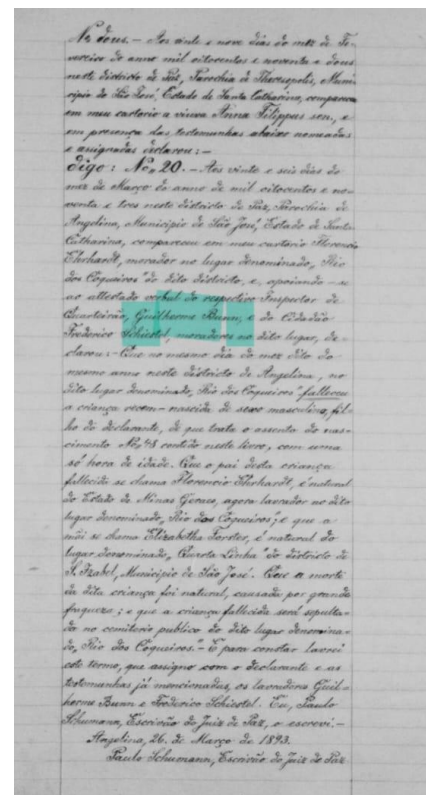 No dous. - Aos vinte e nove dias do mez de Fe-
vereiro do anno mil oitocentos e noventa e dous
neste districto de Paz, Parochia de Theresopolis, Muni-
cipio de São José, Estado de Santa Catharina, compareceu
em meu cartorio a viuva Anna Filippus sen., e
em presença das testemunhas abaixo nomeadas
e assignadas declarou: -
Digo: No 20. - Aos vinte e seis dias do
mez de Março do anno de mil oitocentos e no-
venta e tres neste districto de Paz, Parochia de
Angelina, Municipio de São José, Estado de Santa
Catharina, compareceu em meu cartorio Florencio
Ehrhardt, morador no lugar denominado, "Rio
dos Coqueiros" do dito districto, e, apoiando-se
ao attestado verbal do respectivo Inspector de
Quarteirão, Guilherme Bunn, e do Cidadão
Frederico Schiestel, moradores no dito lugar, de-
clarou: - Que no mesmo dia do mez dito do
mesmo anno neste districto de Angelina, no
dito lugar denominado, "Rio dos Coqueiros" falleceu
a criança recem-nascida de sexo masculino, fil-
ho do declarante, de que trata o assento de nas-
cimento No 48 contido neste livro, com uma
só hora de idade. Que o pai desta criança
fallecida se chama Florencio Ehrhardt, é natural
do Estado de Minas Geraes, agora lavrador no dito
lugar denominado, "Rio dos Coqueiros"; e que a
mãi se chama Elizabetha Forster, é natural do
lugar denominado, "Quarta Linha" do districto de
S. Izabel, Municipio de São José. Que a morte
da dita criança foi natural, causada por grande
fraqueza; e que a criança fallecida será sepulta-
da no cemiterio publico do dito lugar denomina-
do, "Rio dos Coqueiros." - E para constar lavrei
este termo, que assigno com o declarante e as
testemunhas já mencionadas, os lavradores Guil-
herme Bunn e Frederico Schiestel. Eu, Paulo
Schumann, Escrivão do Juiz de Paz, o escrevi. -
Angelina, 26. de Março de 1893.
Paulo Schumann, Escrivão do Juiz de Paz